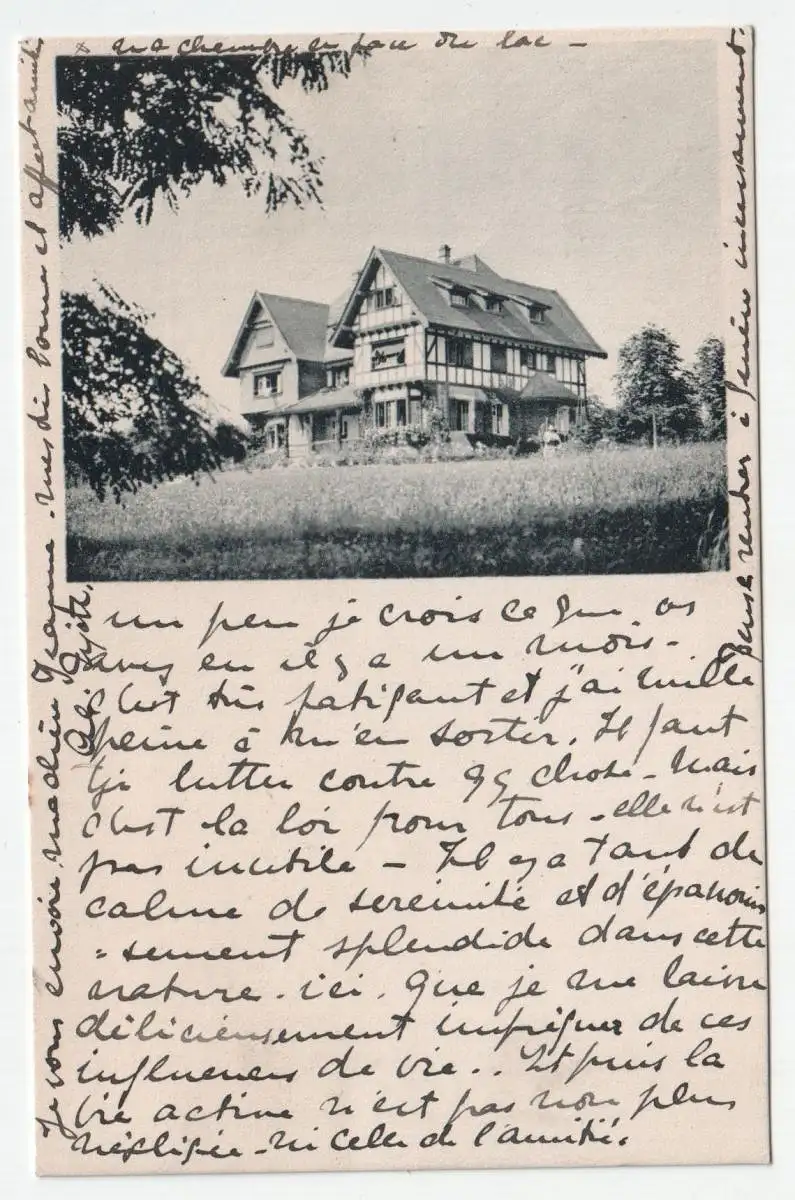 x ma chambre en face du lac –
un peu je crois ce que vs
avez eu il y a un mois –
c'est très fatigant et j'ai mille
peine à m'en sortir. Il faut
lutter contre qq chose – mais
c'est la loi pour tous – elle n'est
pas inutile – Il y a tant de
calme de sérénité et d'épanouis
=sement splendide dans cette
nature. ici. que je me laisse
délicieusement imprégner de ces
influences de vie.. Et puis la
vie active n'est pas non plus
négligée – ni celle de l'amitié.
Je vous envoie, ma chère Jeanne – mes très bonne et affect amitiés
pense rentrer à Genève incessamment.